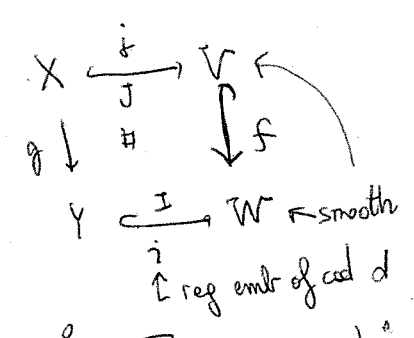 j
X V
J
g # f
Y I W smooth
i
reg emb of cod d